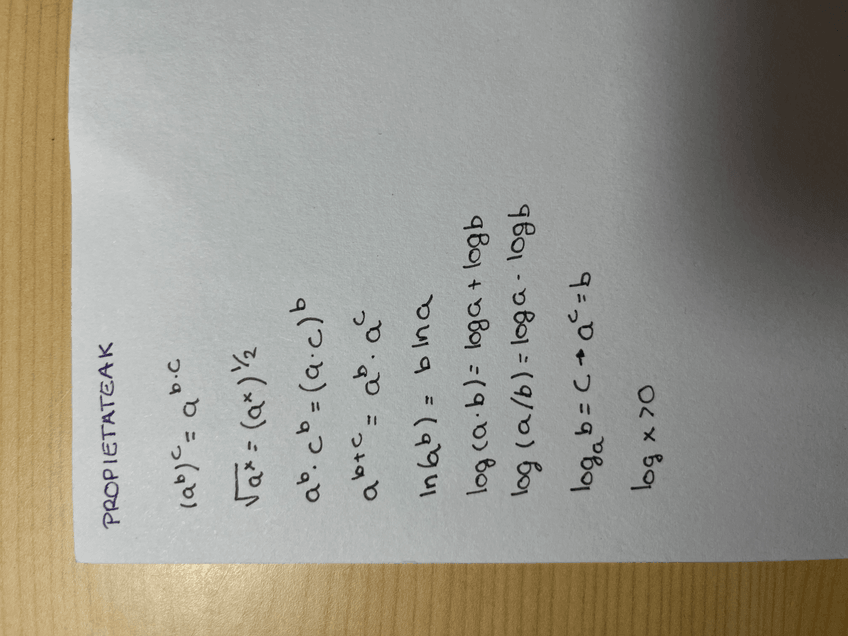 PROPIETATEAK
(a^b)^c = a^{b·c}
√a^x = (a^x)^{1/2}
a^b · c^b = (a·c)^b
a^{b+c} = a^b · a^c
ln(a^b) = b ln a
log(a·b) = log a + log b
log(a/b) = log a - log b
log_a b = c → a^c = b
log x > 0